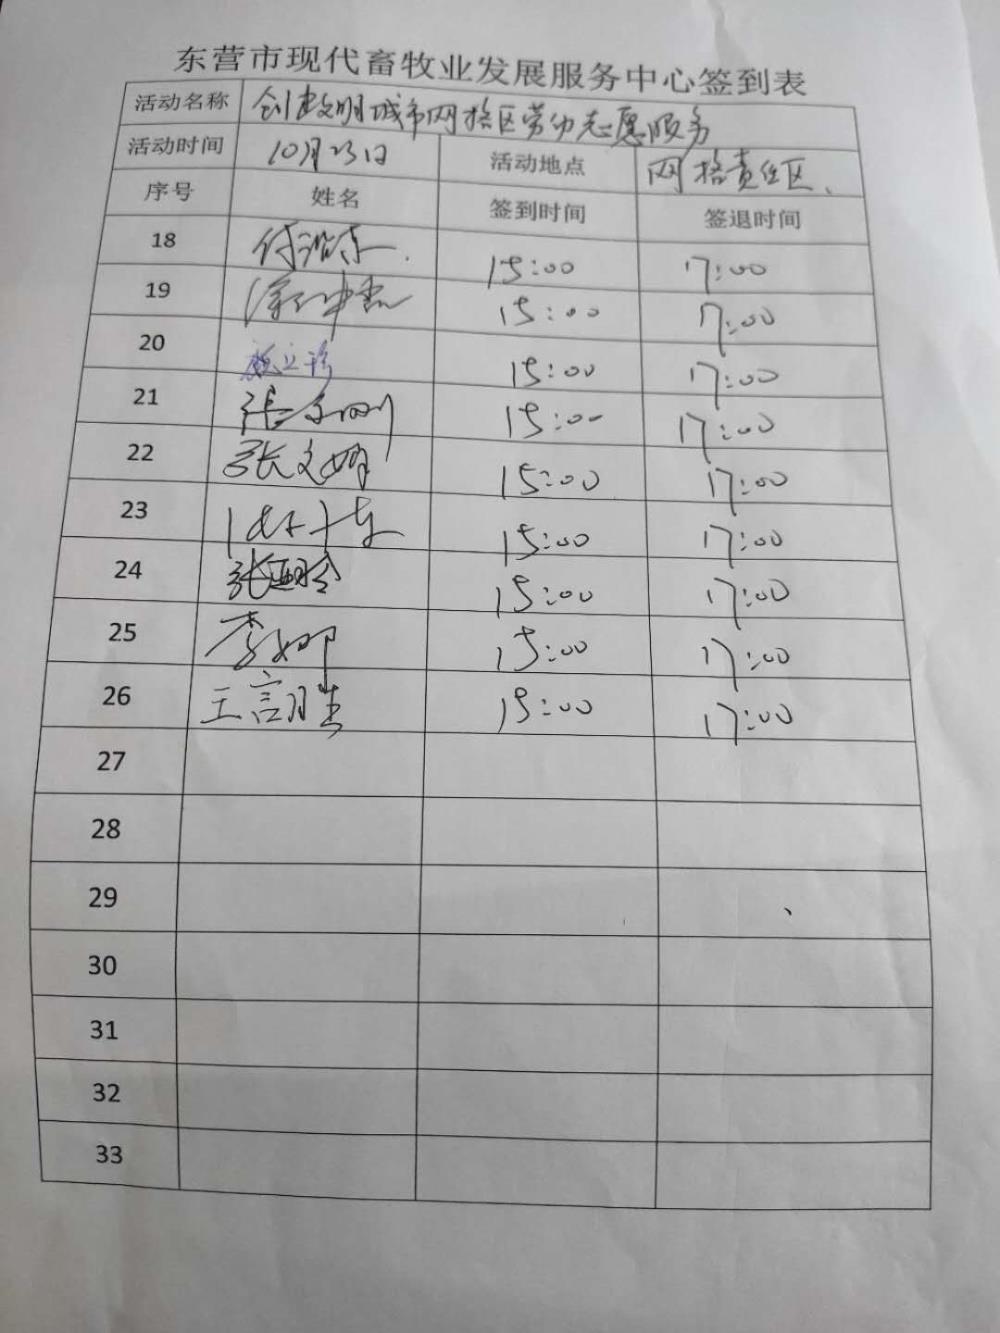 东营市现代畜牧业发展服务中心签到表
活动名称 创建文明城市网格区劳动志愿服务
活动时间 10月23日 活动地点 网格责任区
序号 姓名 签到时间 签退时间
18 15:00 17:00
19 15:00 17:00
20 15:00 17:00
21 15:00 17:00
22 张文娟 15:00 17:00
23 15:00 17:00
24 15:00 17:00
25 李娜 15:00 17:00
26 15:00 17:00
27
28
29
30
31
32
33